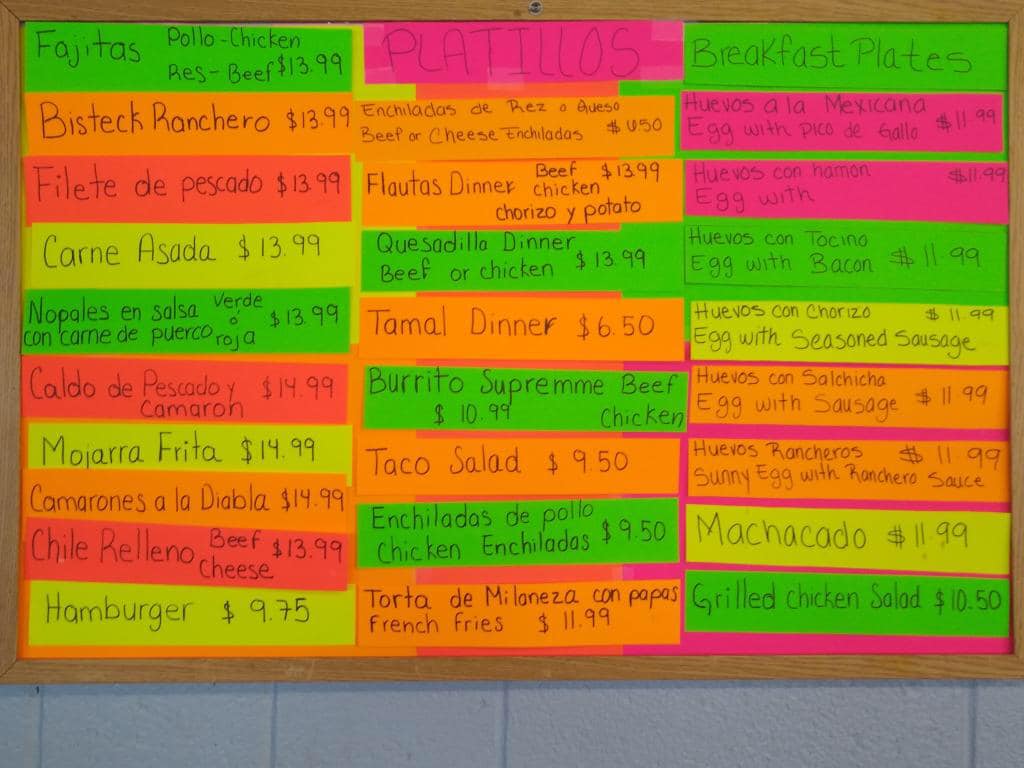 Fajitas Pollo-Chicken
Res-Beef $13.99
Bisteck Ranchero $13.99
Filete de pescado $13.99
Carne Asada $13.99
Nopales en salsa Verde
ó $13.99
con carne de puerco roja
Caldo de Pescado y $14.99
Camaron
Mojarra Frita $14.99
Camarones a la Diabla $14.99
Chile Relleno Beef $13.99
Cheese
Hamburger $ 9.75
PLATILLOS
Enchiladas de Rez o Queso
Beef or Cheese Enchiladas
Flautas Dinner Beef $13.99
chicken
chorizo y potato
Quesadilla Dinner
Beef or chicken $13.99
Tamal Dinner $6.50
Burrito Supremme Beef
$ 10.99 Chicken
Taco Salad $ 9.50
Enchiladas de pollo
Chicken Enchiladas $9.50
Torta de Milaneza con papas
French fries $ 11.99
Breakfast Plates
Huevos a la Mexicana
Egg with pico de Gallo $11.99
Huevos con hamon $11.99
Egg with
Huevos con Tocino
Egg with Bacon $11.99
Huevos con Chorizo $11.99
Egg with Seasoned Sausage
Huevos con Salchicha
Egg with Sausage $11.99
Huevos Rancheros $11.99
Sunny Egg with Ranchero Sauce
Machacado $11.99
Grilled chicken Salad $10.50